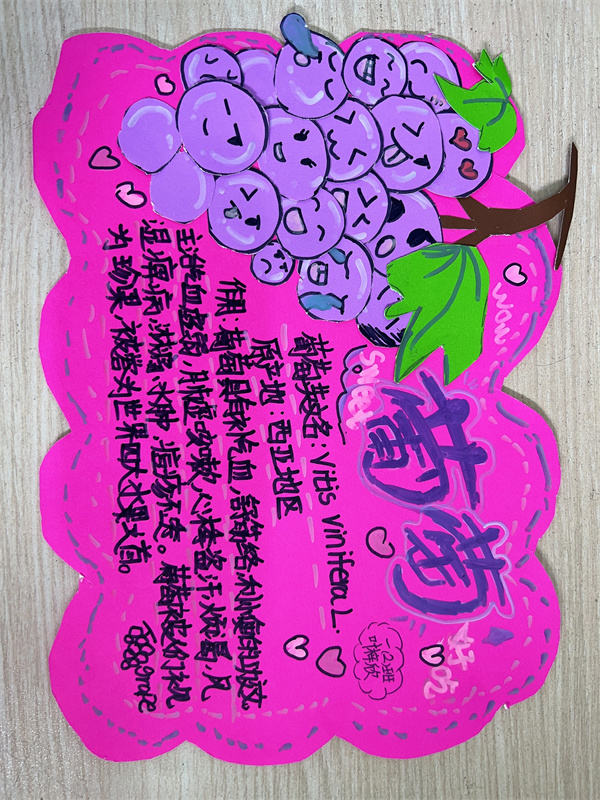 wow
Sweet
葡萄
好吃
葡萄英文名：Vitis vinifera L.
原产地：西亚地区
作用：葡萄具有补气血，舒筋络，利小便的功效。
主治气血虚弱，肺虚咳嗽，心悸盗汗，烦渴，风
湿痹病，淋病，水肿，痘疹不透。葡萄被人们视
为珍果，被誉为世界四大水果之首。
grape
一(2)班